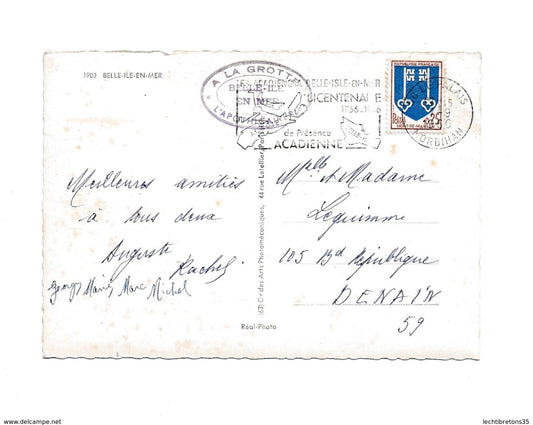 1900 BELLE-ILE-EN-MER
A LA GROTTE
L'APOTHICAIRERIE
BELLE-ILE
EN MER
LES ACADIENS A BELLE-ISLE-EN-MER
BICENTENAIRE
1766-1966
de Présence
ACADIENNE
REPUBLIQUE FRANCAISE
0,25
MONT-DE-MARSAN
LE PALAIS
MORBIHAN
Meilleures amitiés
à tous deux
Auguste
Rachel
Georges Marie Marc Michel
et Madame
Lequimme
105 Bd République
DENAIN
59
(63) Cie des Arts Photomécaniques, 44 rue Letellier, Paris
Réal-Photo
www.delcampe.net
lechtibretons35